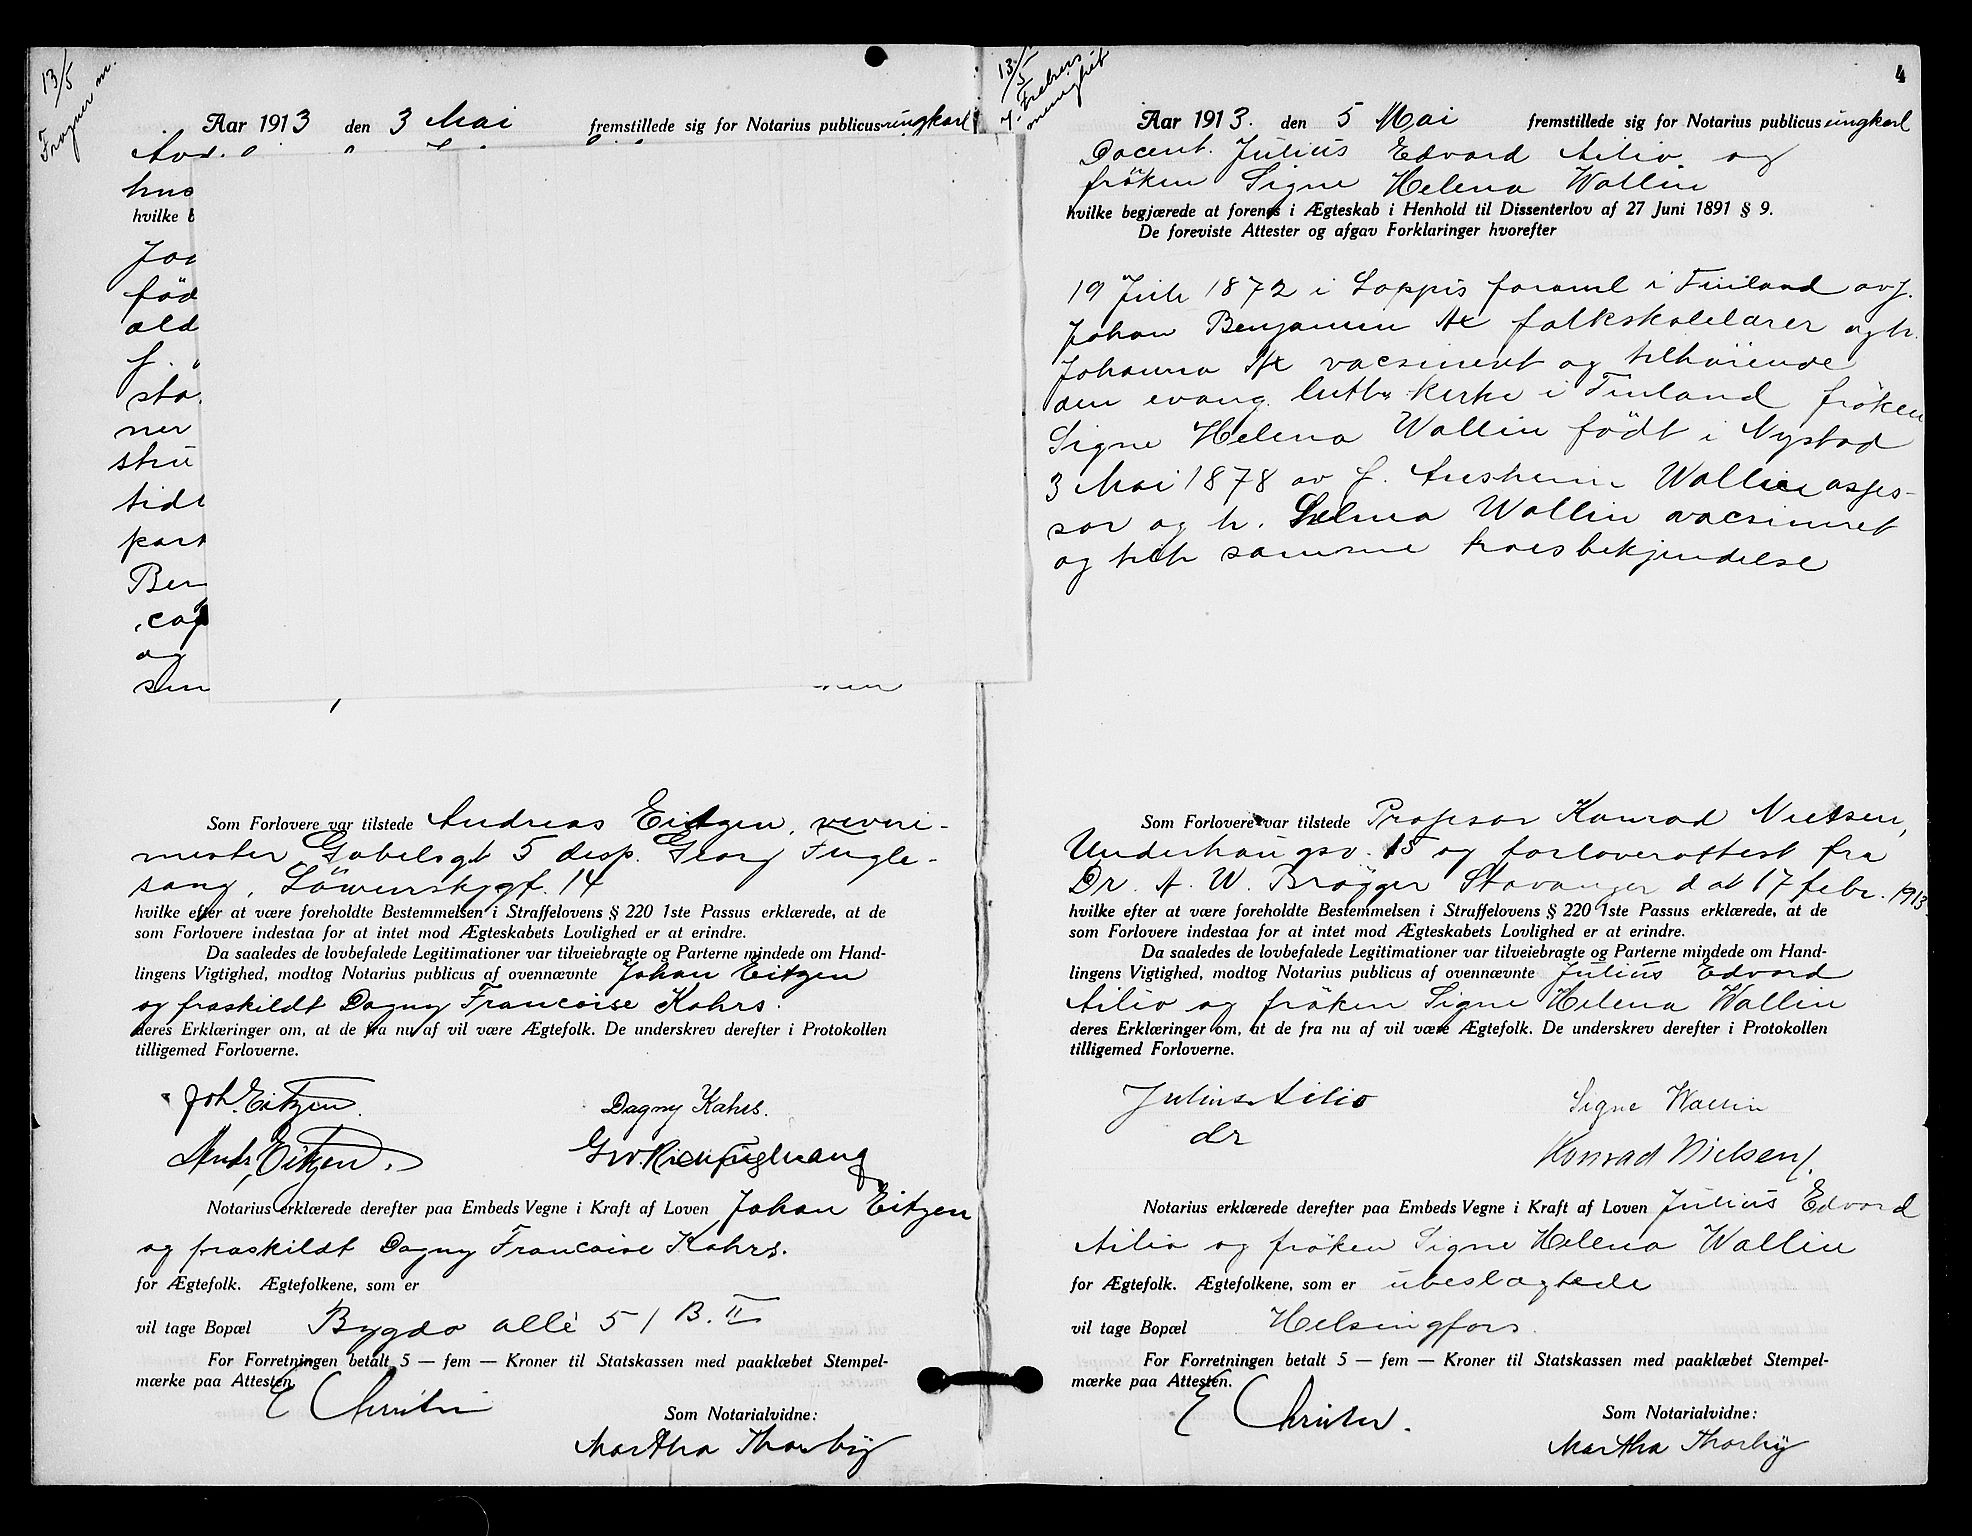 13/5
Frogner m.
Aar 1913 den 3 Mai fremstillede sig for Notarius publicus ungkarl
hvilke b
Joa
fød
ald
f.
sta
ner
stru
tidl
part
Ber
og
sin
Som Forlovere var tilstede Andreas Eitzen, verori-
mester, Gabelsgt 5 disp. Georg Fugle-
sang, Löwenskygt. 14
hvilke efter at være foreholdte Bestemmelsen i Straffelovens § 220 1ste Passus erklærede, at de
som Forlovere indestaa for at intet mod Ægteskabets Lovlighed er at erindre.
Da saaledes de lovbefalede Legitimationer var tilveiebragte og Parterne mindede om Hand-
lingens Vigtighed, modtog Notarius publicus af ovennævnte Johan Eitzen
og fraskildt Dagny Francoise Kahrs.
deres Erklæringer om, at de fra nu af vil være Ægtefolk. De underskrev derefter i Protokollen
tilligemed Forloverne.
Joh. Eitzen. Dagny Kahrs.
Andr. Eitzen.
Notarius erklærede derefter paa Embeds Vegne i Kraft af Loven Johan Eitzen
og fraskildt Dagny Francoise Kahrs.
for Ægtefolk. Ægtefolkene, som er
vil tage Bopæl Bygdø allé 51 B. II
For Forretningen betalt 5 — fem — Kroner til Statskassen med paaklæbet Stempel-
mærke paa Attesten.
E Christie
Som Notarialvidne:
Martha Thorby
4
13/5
menighet
Aar 1913. den 5 Mai fremstillede sig for Notarius publicus ungkarl
Docent. Julius Edvard Ailio og
fröken Signe Helena Wallin
hvilke begjærede at forenes i Ægteskab i Henhold til Dissenterlov af 27 Juni 1891 § 9.
De foreviste Attester og afgav Forklaringer hvorefter
19 Juli 1872 i Loppis i Finland av f.
Johan Benjamin Ax folkskolelærer og h.
Johanna Ax vacsineret og tilhörende
den evang. luth. kirke i Finland fröken
Signe Helena Wallin födt i Nystad
3 Mai 1878 av f. Anshelm Wallin asses-
sor og h. Selma Wallin vacsineret
og tilh samme troesbekjendelse
Som Forlovere var tilstede Profssor Konrad Nielsen,
Underhaugsv. 15 og forloverattest fra
Dr. A. W. Brøgger Stavanger dat 17 febr. 1913
hvilke efter at være foreholdte Bestemmelsen i Straffelovens § 220 1ste Passus erklærede, at de
som Forlovere indestaa for at intet mod Ægteskabets Lovlighed er at erindre.
Da saaledes de lovbefalede Legitimationer var tilveiebragte og Parterne mindede om Hand-
lingens Vigtighed, modtog Notarius publicus af ovennævnte Julius Edvard
Ailio og fröken Signe Helena Wallin
deres Erklæringer om, at de fra nu af vil være Ægtefolk. De underskrev derefter i Protokollen
tilligemed Forloverne.
Julius Ailio Signe Wallin
dr Konrad Nielsen
Notarius erklærede derefter paa Embeds Vegne i Kraft af Loven Julius Edvard
Ailio og fröken Signe Helena Wallin
for Ægtefolk. Ægtefolkene, som er ubeslagtede
vil tage Bopæl Helsingfors.
For Forretningen betalt 5 — fem — Kroner til Statskassen med paaklæbet Stempel-
mærke paa Attesten.
E Christie.
Som Notarialvidne:
Martha Thorby